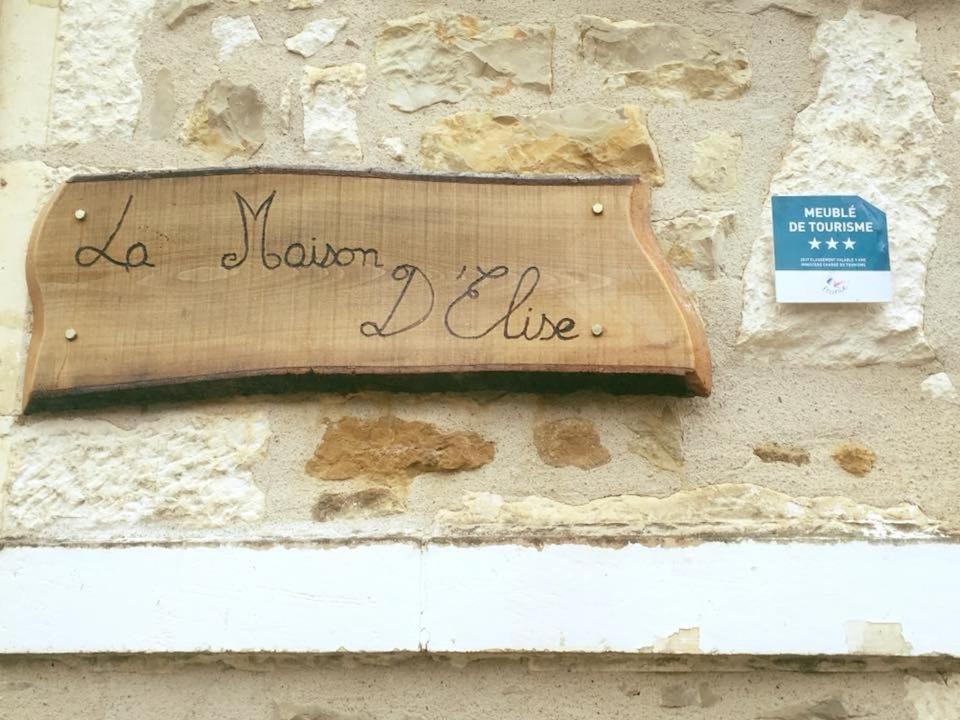 La Maison
D'Elise
MEUBLÉ
DE TOURISME
★★★
2017 CLASSEMENT VALABLE 5 ANS
MINISTÈRE CHARGÉ DU TOURISME